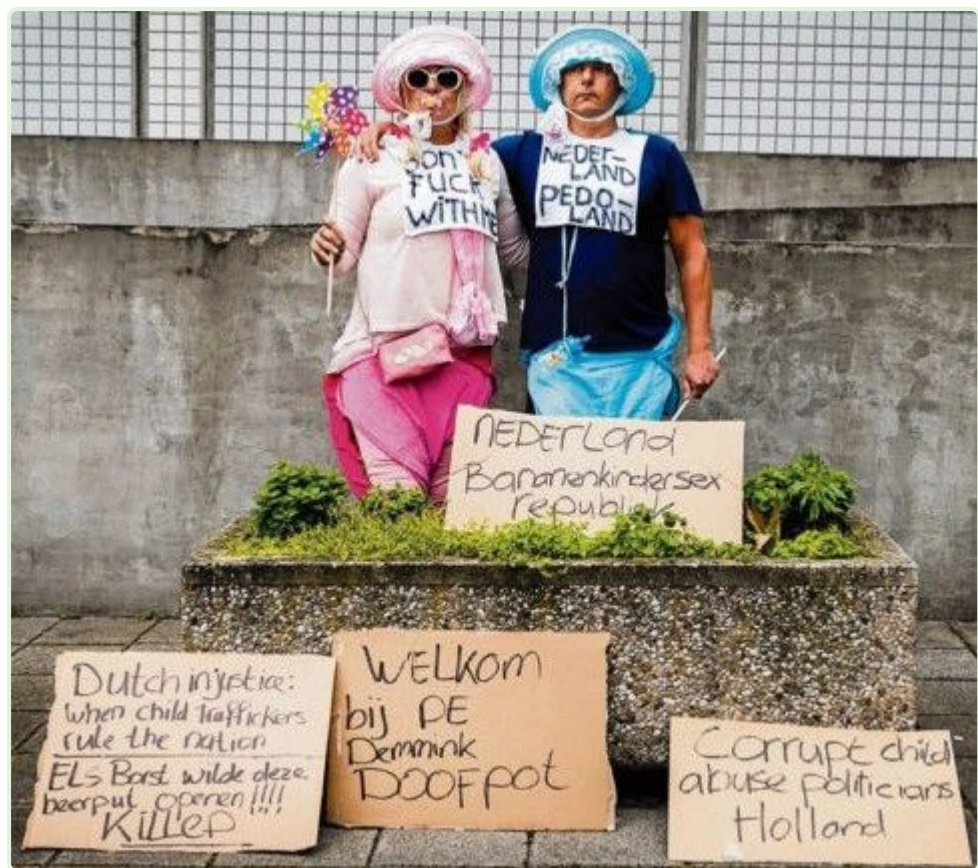 DON'T
FUCK
WITH ME
NEDER-
LAND
PEDO-
LAND
NEDERLAND
Bananenkindersex
republiek
Dutch injustice:
when child traffickers
rule the nation
ELs Borst wilde deze
beerput openen!!!!
KillED
WELKOM
bij DE
Demmink
DOOFPOT
Corrupt child
abuse politicians
Holland